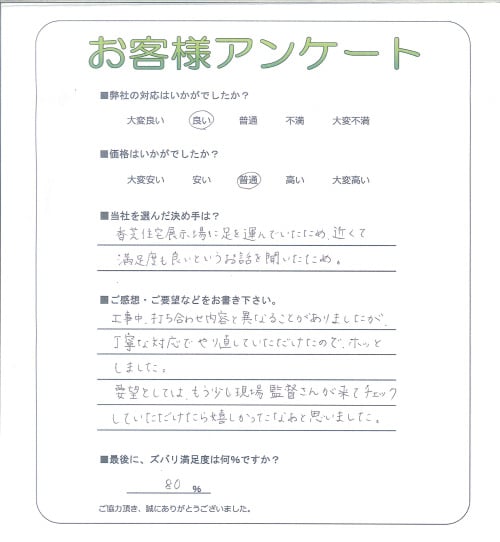 お客様アンケート
■弊社の対応はいかがでしたか?
大変良い 良い 普通 不満 大変不満
■価格はいかがでしたか?
大変安い 安い 普通 高い 大変高い
■当社を選んだ決め手は?
香芝住宅展示場に足を運んでいたため、近くて
満足度も良いというお話を聞いたため。
■ご感想・ご要望などをお書き下さい。
工事中、打ち合わせ内容と異なることがありましたが、
丁寧な対応でやり直していただけたので、ホッと
しました。
要望としては、もう少し現場監督さんが来てチェック
していただけたら嬉しかったなぁと思いました。
■最後に、ズバリ満足度は何%ですか?
80 %
ご協力頂き、誠にありがとうございました。